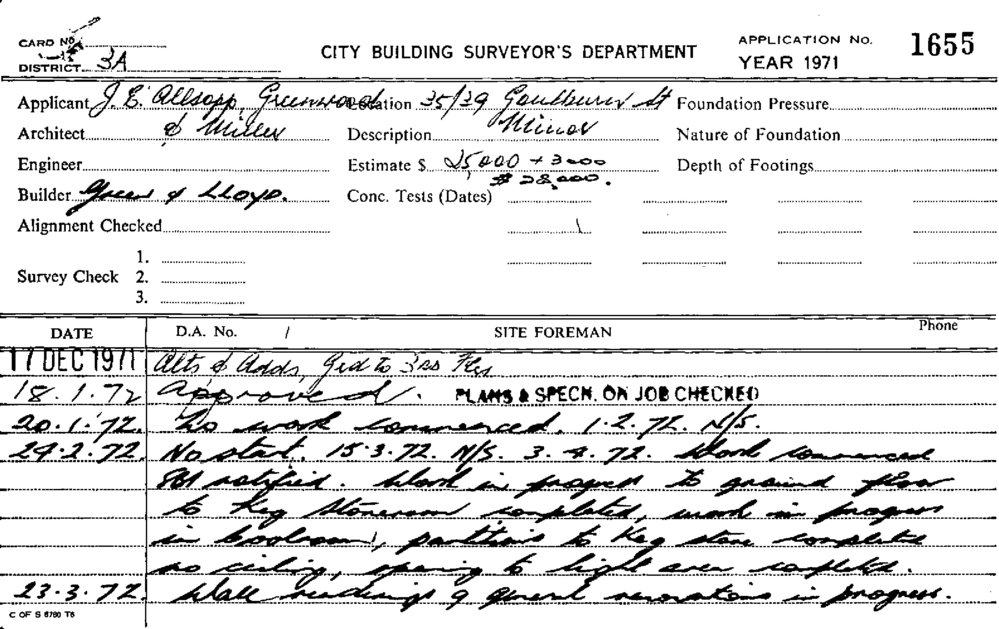 CARD No.
DISTRICT 3A
CITY BUILDING SURVEYOR'S DEPARTMENT
APPLICATION No. 1655
YEAR 1971
Applicant J. E. Allsopp, Greenwood Location 35/39 Goulburn St Foundation Pressure
Architect & Miller Description Minor Nature of Foundation
Engineer Estimate $ 25,000 + 3000 Depth of Footings
$ 28,000.
Builder & Lloyd. Conc. Tests (Dates)
Alignment Checked
1.
Survey Check 2.
3.
DATE D.A. No. / SITE FOREMAN Phone
17 DEC 1971 Alts & Adds, Grd to 3rd Flrs
18.1.72 Approved. PLANS & SPECN. ON JOB CHECKED
20.1.72. No work commenced. 1.2.72. N/S.
29.2.72. No start. 15.3.72. N/S. 3.4.72. Work commenced
notified. Work in progress to ground floor
to Keg Storeroom completed, work in progress
in coolroom, partitions to Keg store complete
no ceiling, opening to light area completed.
23.3.72. Wall & general renovations in progress.
C OF S 6780 T6